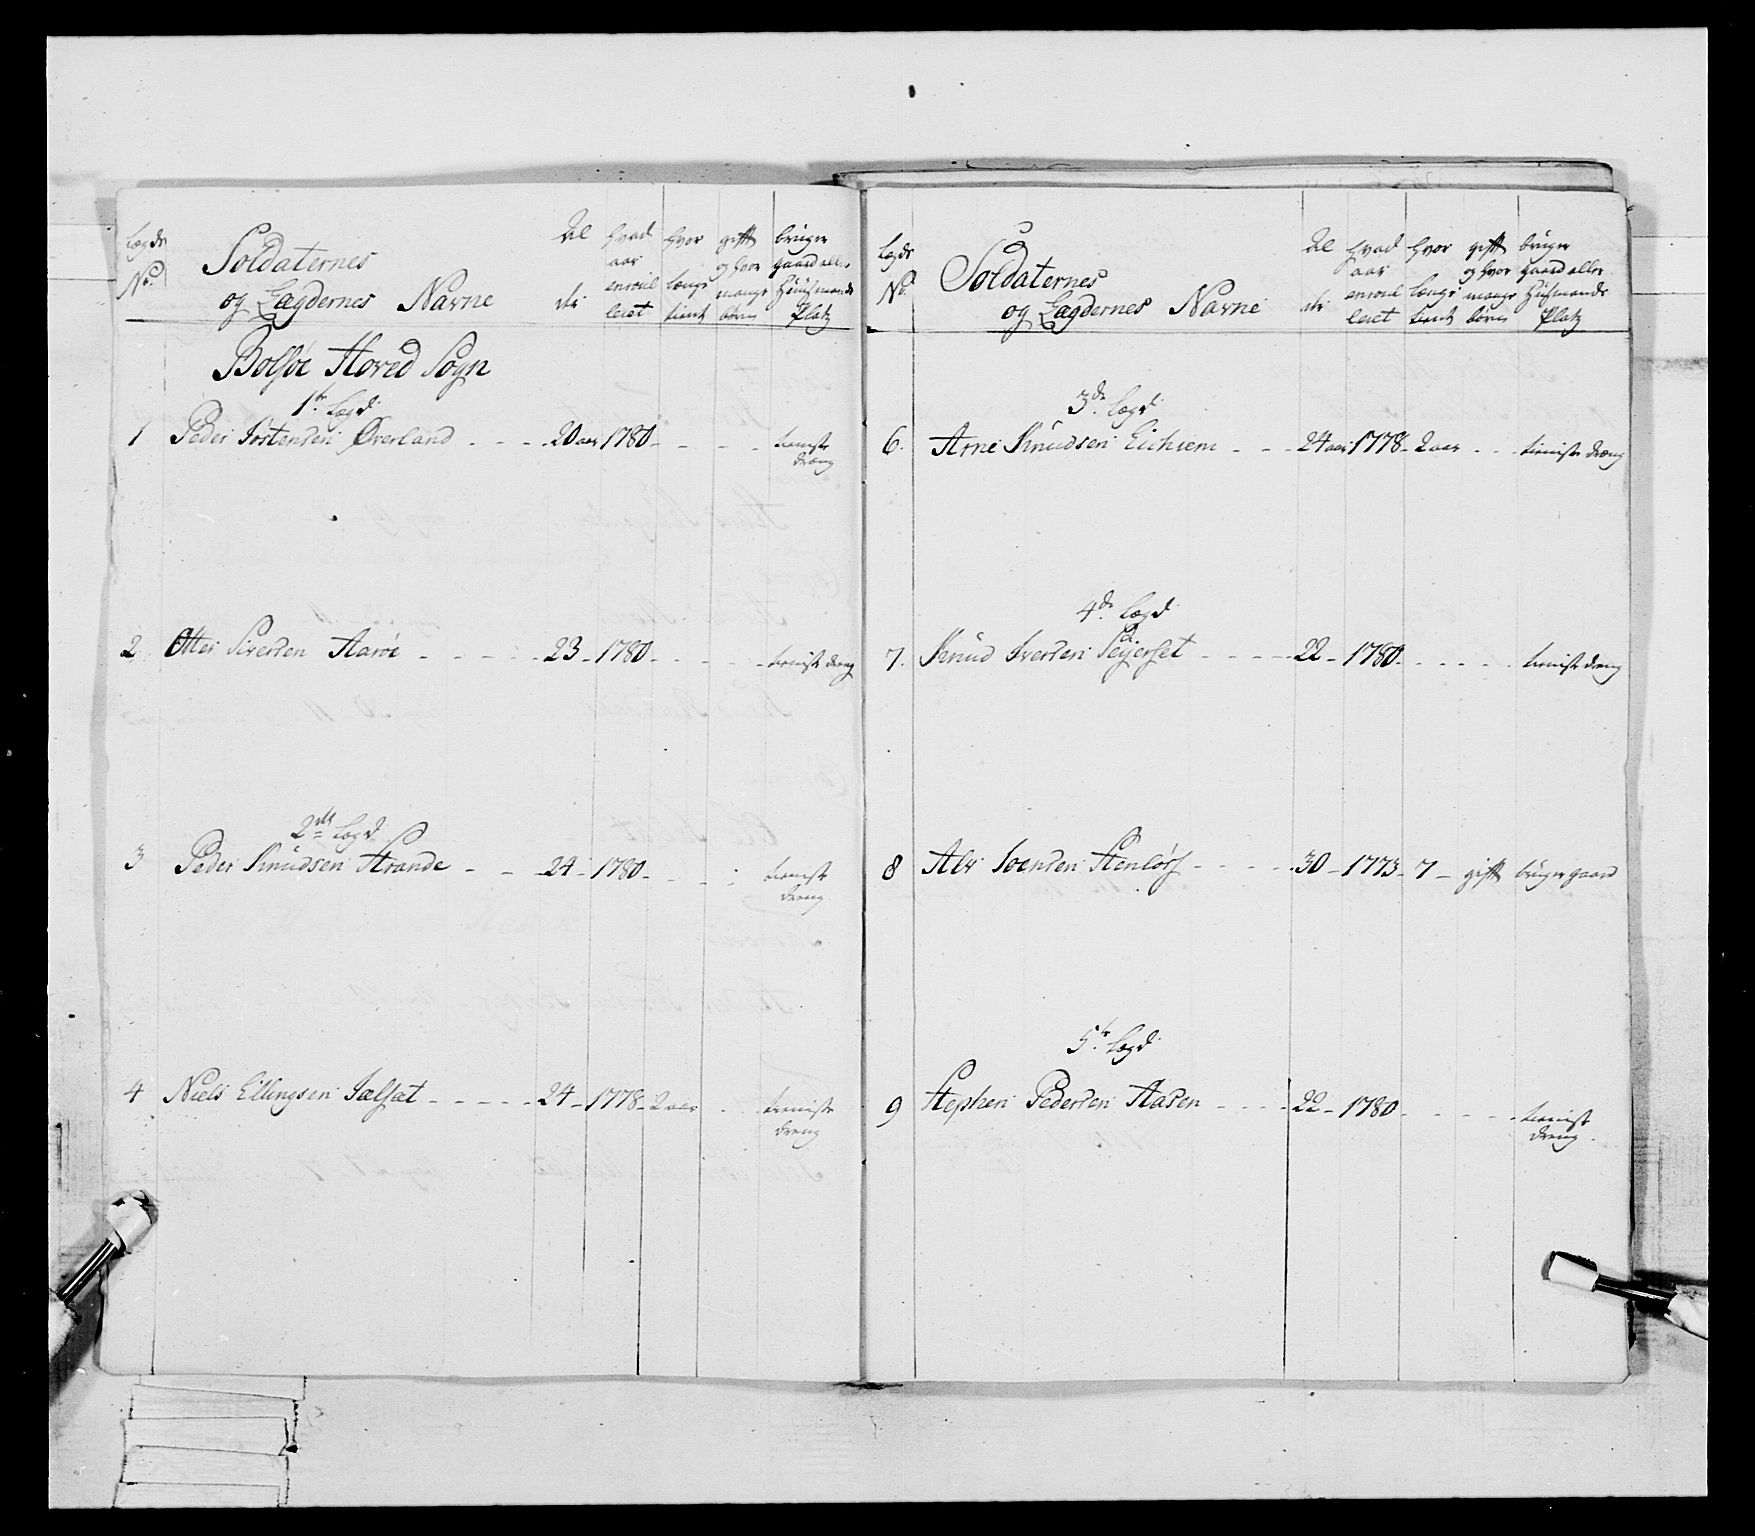 Lægde No. Soldaternes og Lægdernes Navne Al der hvad aar enroulleret hvor længe tient gift og hvor mange børn bruger gaard eller Huusmands Platz
Bolsøe Hoved Sogn
1te Lægd
1 Peder Iostensen Øverland 20 aar 1780 tieniste dreng
2 Otter Siversen Aarøe 23 1780 tieniste dreng
2det Lægd
3 Peder Knudsen Strande 24 1780 tieniste dreng
4 Niels Ellingsen 24 1778 2 aar tieniste dreng
Lægde No. Soldaternes og Lægdernes Navne Al der hvad aar enroulleret hvor længe tient gift og hvor mange børn bruger gaard eller Huusmands Platz
3de Lægd
6. Arne Knudsen Eichrem 24 aar 1778 2 aar tieniste dreng
4de Lægd
7. Knud Iversen 22 1780 tieniste dreng
8 30 1773 7 gift bruger gaard
5te Lægd
9 Stephen Pedersen Aasen 22 1780 tieniste dreng